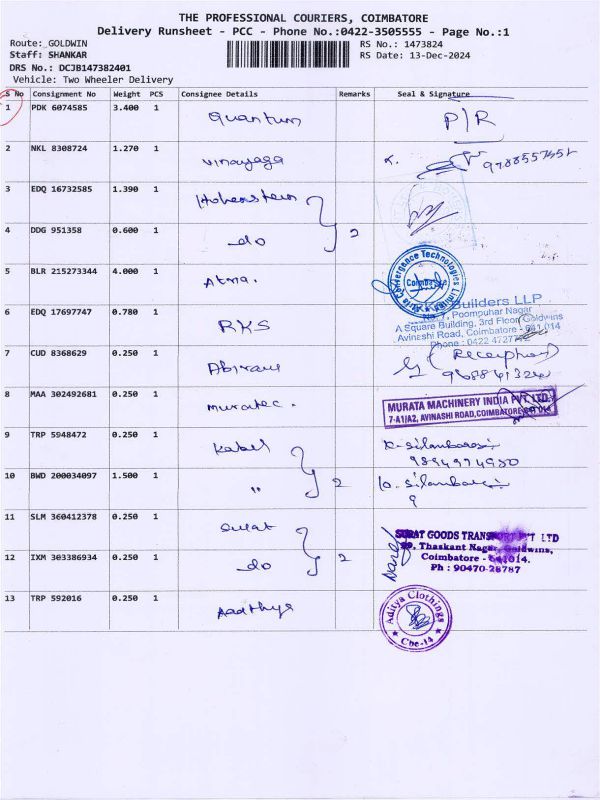 THE PROFESSIONAL COURIERS, COIMBATORE
Delivery Runsheet - PCC - Phone No.:0422-3505555 - Page No.:1
Route: GOLDWIN RS No.: 1473824
Staff: SHANKAR RS Date: 13-Dec-2024
DRS No.: DCJB147382401
Vehicle: Two Wheeler Delivery
S No Consignment No Weight PCS Consignee Details Remarks Seal & Signature
1 PDK 6074585 3.400 1 Quantum P/R
2 NKL 8308724 1.270 1 Vinayaga
3 EDQ 16732585 1.390 1 Hohenstein
4 DDG 951358 0.600 1 do 2
5 BLR 215273344 4.000 1 Atma.
Convergence Technologies
6 EDQ 17697747 0.780 1 RKS
Builders LLP
Poompuhar Nagar
A Square Building, 3rd Floor, Goldwins
Avinashi Road, Coimbatore - 641 014
Phone : 0422
7 CUD 8368629 0.250 1 Abirami
8 MAA 302492681 0.250 1 Muratec.
MURATA MACHINERY INDIA PVT. LTD.
7-A1/A2, AVINASHI ROAD, COIMBATORE
9 TRP 5948472 0.250 1 Kabel K. Silambarasi
9894974980
10 BWD 200034097 1.500 1 " 2
11 SLM 360412378 0.250 1 Surat
12 IXM 303386934 0.250 1 do 2
SURAT GOODS TRANSPORT PVT LTD
Thaskant Nagar, Goldwins,
Coimbatore - 641014.
Ph : 90470-28787
13 TRP 592016 0.250 1 Aadthya
Aditya Clothings
Cbe-14